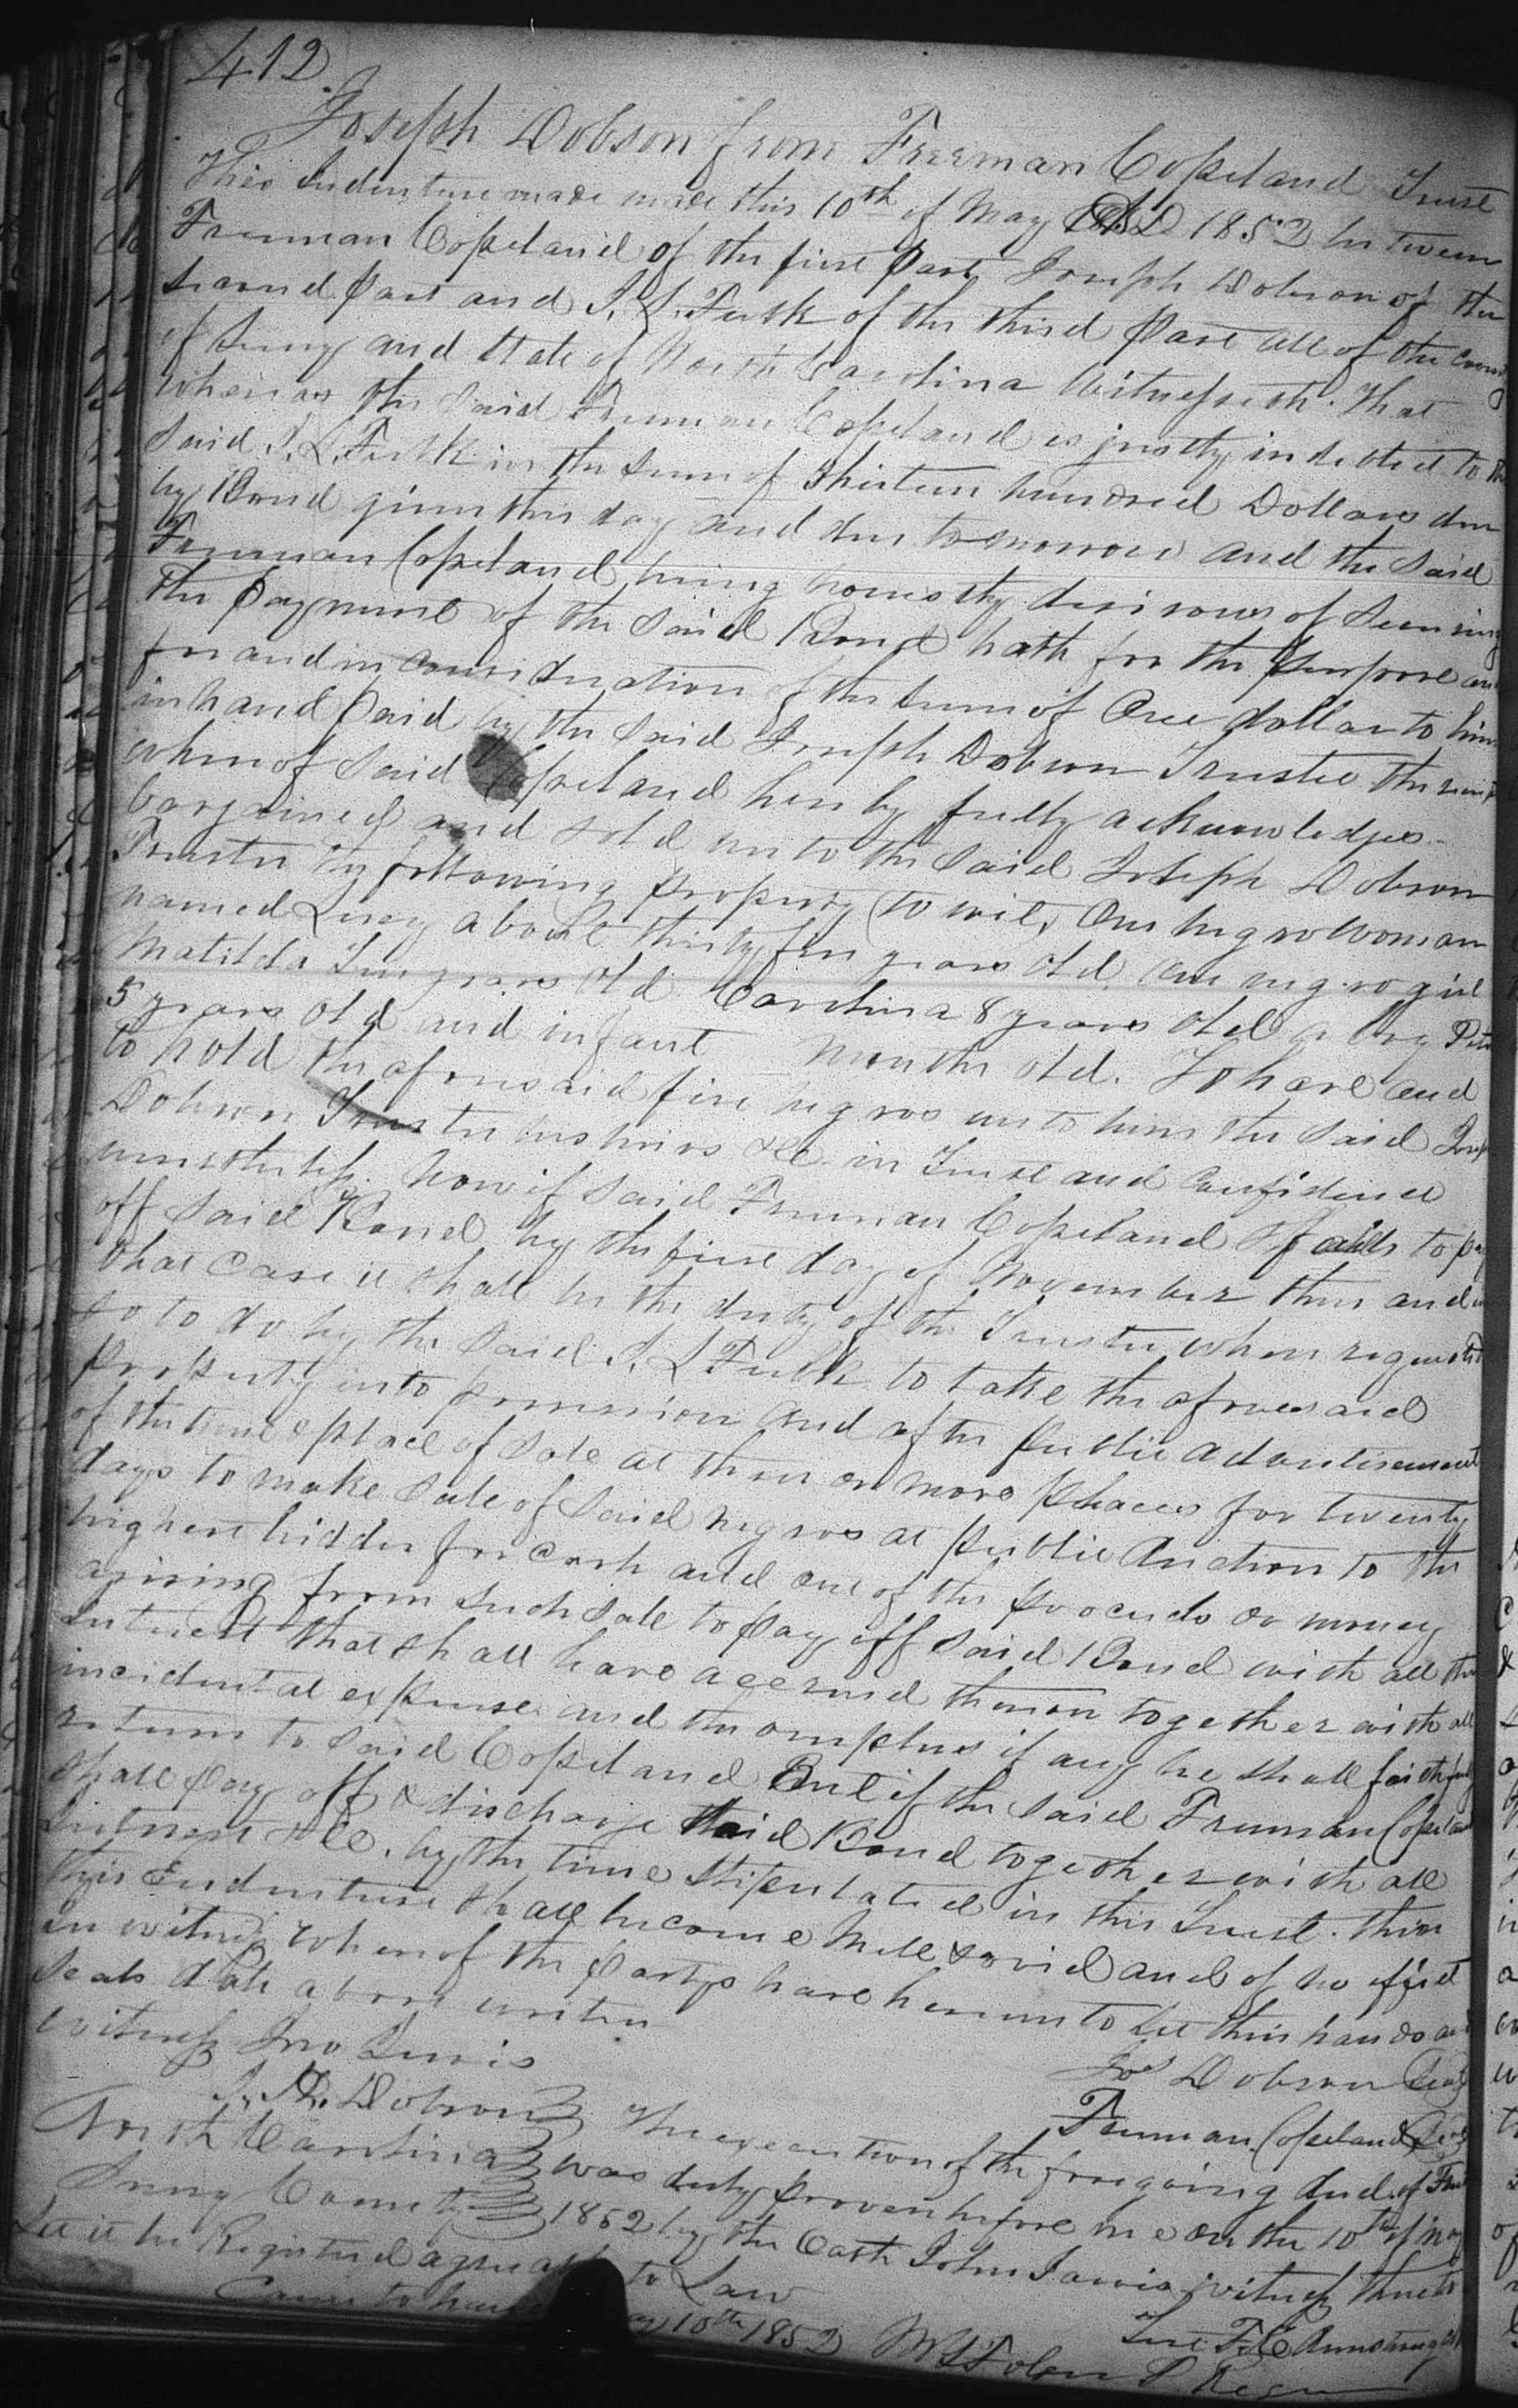 412
Joseph Dobson from Freeman Copeland Trust
This Indenture made made this 10th of May AD 1852 between
Freeman Copeland of the first part Joseph Dobson of the
second part and J. L. Fulk of the third part all of the County
of Surry and State of North Carolina Witnesseth. That
whereas the said Freeman Copeland is justly indebted to the
said J. L. Fulk in the sum of thirteen hundred Dollars due
by Bond given this day and due tomorrow and the said
Freeman Copeland being honestly desirous of securing
the payment of the said Bond hath for the purpose and
for and in consideration of the sum of One dollar to him
in hand paid by the said Joseph Dobson Trustee the receipt
whereof said Copeland hereby fully acknowledges
bargained and sold unto the said Joseph Dobson
Trustee the following property (to wit, One negro woman
named Lucy about thirty five years old. One negro girl
Matilda Ten years old Carolina 8 years old a boy Peter
5 years old and infant months old. To have and
to hold the aforesaid five negros unto him the said Joseph
Dobson Trustee his heirs &c in Trust and Confidence
nevertheless. Now if said Freeman Copeland fails to pay
off said Bond by the first day of November then and in
that case it shall be the duty of the Trustee when requested
so to do by the said J. L. Fulk to take the aforesaid
property into possession and after public advertisement
of the time & place of sale at three or more places for twenty
days to make sale of said negros at public Auction to the
highest bidder for cash and out of the proceeds or money
arising from such sale to pay off said Bond with all the
Interest that shall have accrued thereon together with all
incidental expense and the overplus if any he shall faithfully
return to said Copeland But if the said Freeman Copeland
shall pay off & discharge said Bond together with all
Interest &c. by the time stipulated in this Trust. then
this Endenture shall become Null & void and of no effect
In witness whereof the partys have hereunto set their hands and
seals date above written
Witness Jno Jarvis
Jos Dobson Seal
Dobson
Freeman Copeland Seal
North Carolina The execution of the foregoing deed of Trust
Surry County was duly proven before me on the 10th of May
1852 by the Oath John Jarvis witness thereto
Let it be Registered agreeable to Law
Armstrong
Came to hand May 10th 1852